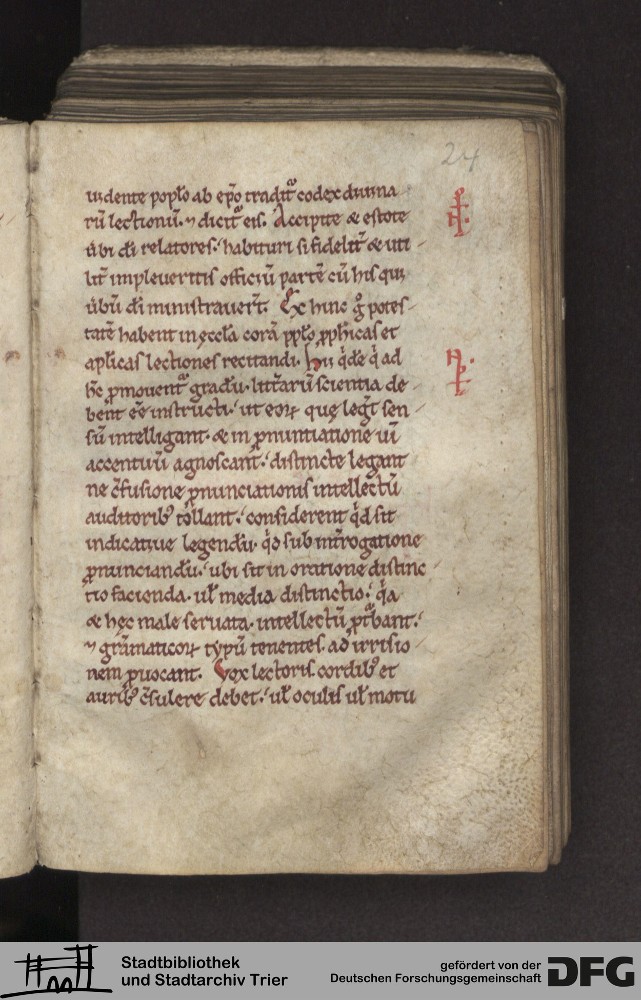 24
uidente pop̄lo ab ep̄o tradit᷑ codex diuina
rū lectionū. ⁊ dicit᷑ eis. Accipite & estote
ûbi dī relatores. habituri si fidelit᷑ & uti
lit᷑ impleueritis officiū partē cū his qui
ûbū dī ministrauer̄t. Ex hinc g̊ potes
tatē habent in ęccl̄a corā pp̄lo ꝓph̄icas et
ap̄licas lectiones recitandi. Hii q̇dē q̇ ad
hc̄ ꝓmouent᷑ gradū. litt᷑arū scientia de
bent eē instructi. ut eoꝝ quę leḡt sen
sū intelligant. & in ꝓnuntiatione uī
accentuū agnoscant. distincte legant
ne c̄fusione ꝓnunciationis intellectū
auditorib; tollant. considerent qd̄ sit
indicatiue legendū. qd̄ sub int᷑rogatione
ꝓnunciandū. ubi sit in oratione distinc
tio facienda. ul̄ media distinctio. q̇a
& hęc male seruata. intellectū ꝑt᷑bant.
⁊ gramaticoꝝ typū tenentes. ad irrisio
nem ꝓuocant. Vox lectoris cordib; et
aurib; c̄sulere debet. ul̄ oculis ul̄ motu
Stadtbibliothek
und Stadtarchiv Trier
gefördert von der
Deutschen Forschungsgemeinschaft
DFG